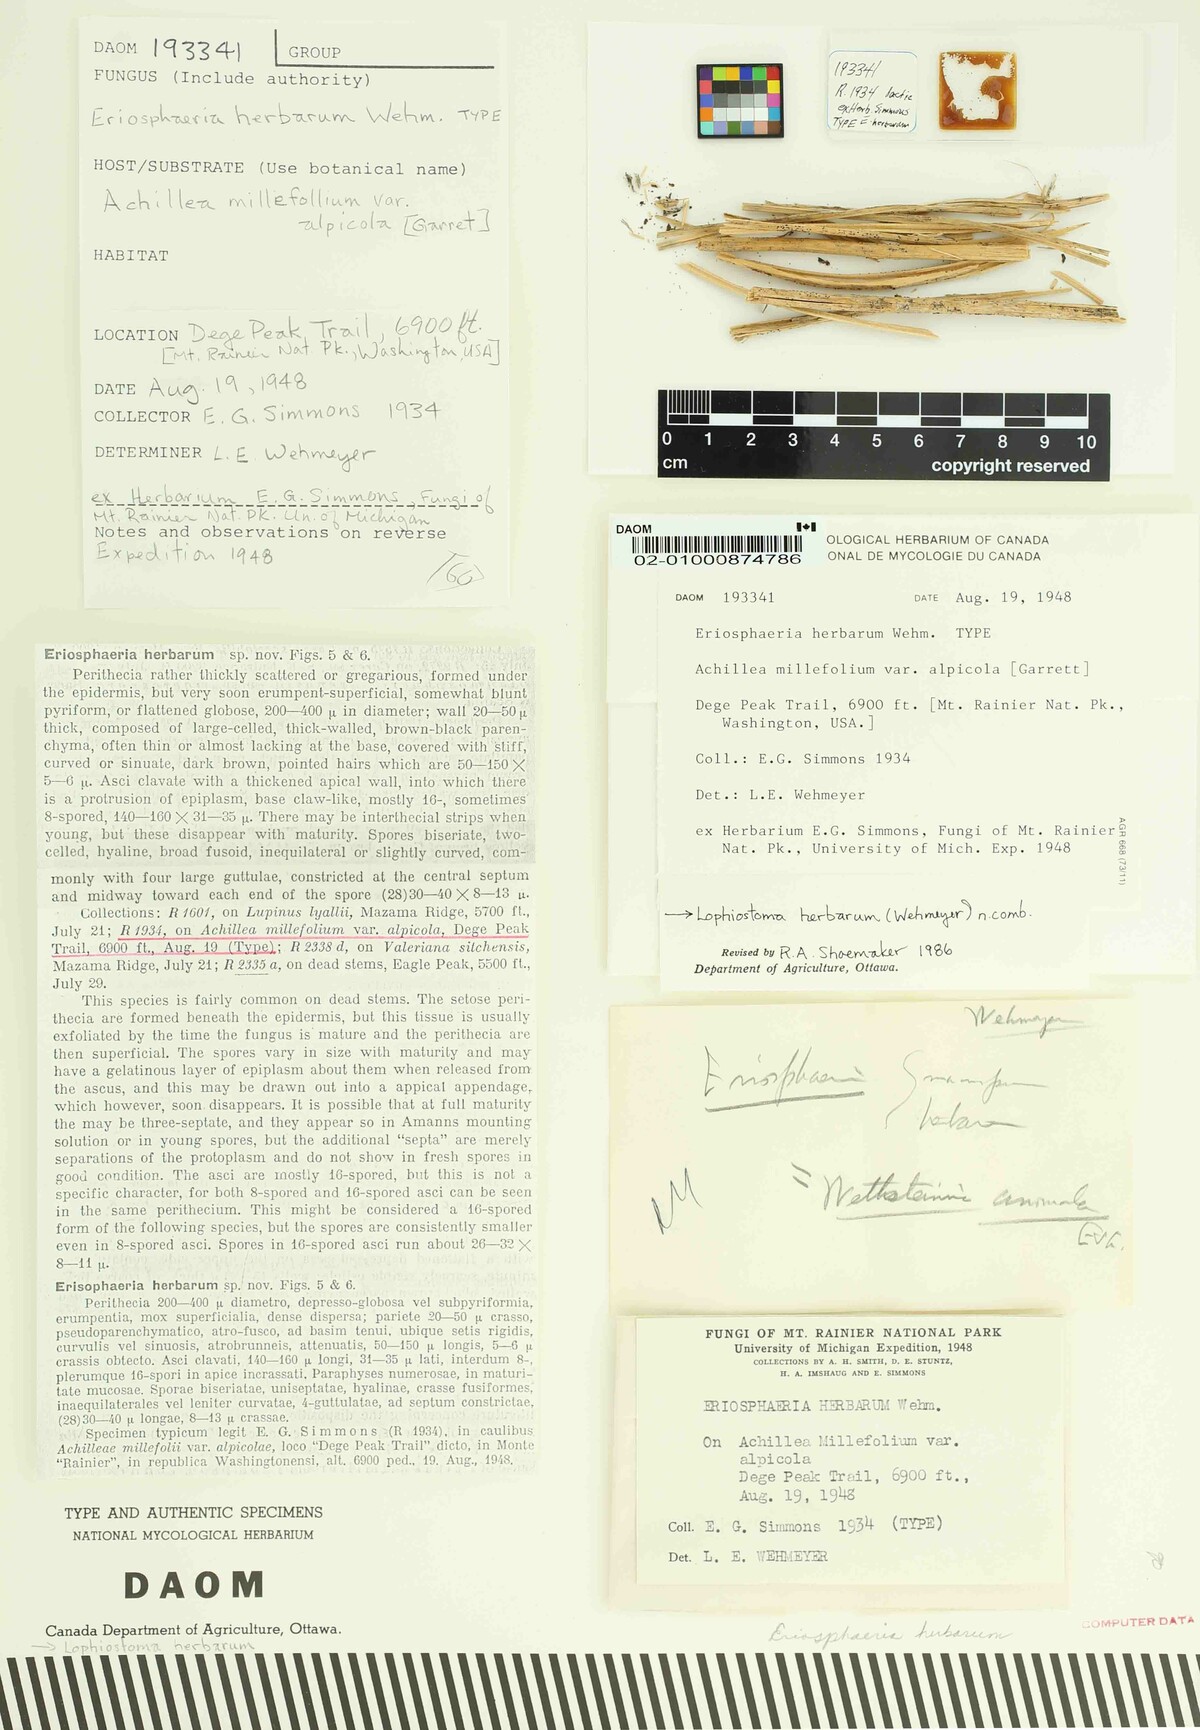 DAOM 193341 GROUP
FUNGUS (Include authority)
Eriosphaeria herbarum Wehm. TYPE
HOST/SUBSTRATE (Use botanical name)
Achillea millefollium var.
alpicola [Garret]
HABITAT
LOCATION Dege Peak Trail, 6900 ft.
[Mt. Rainier Nat Pk., Washington, USA]
DATE Aug. 19, 1948
COLLECTOR E. G. Simmons 1934
DETERMINER L. E. Wehmeyer
ex Herbarium E. G. Simmons, Fungi of
Mt. Rainier Nat. Pk. Un. of Michigan
Notes and observations on reverse
Expedition 1948
193341
R. 1934 lactic
ex Herb. Simmons
TYPE E. herbarum
0 1 2 3 4 5 6 7 8 9 10
cm
copyright reserved
DAOM
02-01000874786
OLOGICAL HERBARIUM OF CANADA
ONAL DE MYCOLOGIE DU CANADA
DAOM 193341 DATE Aug. 19, 1948
Eriosphaeria herbarum Wehm. TYPE
Achillea millefolium var. alpicola [Garrett]
Dege Peak Trail, 6900 ft. [Mt. Rainier Nat. Pk.,
Washington, USA.]
Coll.: E.G. Simmons 1934
Det.: L.E. Wehmeyer
ex Herbarium E.G. Simmons, Fungi of Mt. Rainier
Nat. Pk., University of Mich. Exp. 1948
AGR 668 (73/11)
→ Lophiostoma herbarum (Wehmeyer) n.comb.
Revised by R.A. Shoemaker 1986
Department of Agriculture, Ottawa.
Eriosphaeria herbarum sp. nov. Figs. 5 & 6.
Perithecia rather thickly scattered or gregarious, formed under
the epidermis, but very soon erumpent-superficial, somewhat blunt
pyriform, or flattened globose, 200—400 μ in diameter; wall 20—50 μ
thick, composed of large-celled, thick-walled, brown-black paren-
chyma, often thin or almost lacking at the base, covered with stiff,
curved or sinuate, dark brown, pointed hairs which are 50—150 ×
5—6 μ. Asci clavate with a thickened apical wall, into which there
is a protrusion of epiplasm, base claw-like, mostly 16-, sometimes
8-spored, 140—160 × 31—35 μ. There may be interthecial strips when
young, but these disappear with maturity. Spores biseriate, two-
celled, hyaline, broad fusoid, inequilateral or slightly curved, com-
monly with four large guttulae, constricted at the central septum
and midway toward each end of the spore (28)30—40 × 8—13 μ.
Collections: R 1601, on Lupinus lyallii, Mazama Ridge, 5700 ft.,
July 21; R 1934, on Achillea millefolium var. alpicola, Dege Peak
Trail, 6900 ft., Aug. 19 (Type); R 2338 d, on Valeriana sitchensis,
Mazama Ridge, July 21; R 2335 a, on dead stems, Eagle Peak, 5500 ft.,
July 29.
This species is fairly common on dead stems. The setose peri-
thecia are formed beneath the epidermis, but this tissue is usually
exfoliated by the time the fungus is mature and the perithecia are
then superficial. The spores vary in size with maturity and may
have a gelatinous layer of epiplasm about them when released from
the ascus, and this may be drawn out into a appical appendage,
which however, soon disappears. It is possible that at full maturity
the may be three-septate, and they appear so in Amanns mounting
solution or in young spores, but the additional “septa” are merely
separations of the protoplasm and do not show in fresh spores in
good condition. The asci are mostly 16-spored, but this is not a
specific character, for both 8-spored and 16-spored asci can be seen
in the same perithecium. This might be considered a 16-spored
form of the following species, but the spores are consistently smaller
even in 8-spored asci. Spores in 16-spored asci run about 26—32 ×
8—11 μ.
Erisophaeria herbarum sp. nov. Figs. 5 & 6.
Perithecia 200—400 μ diametro, depresso-globosa vel subpyriformia,
erumpentia, mox superficialia, dense dispersa; pariete 20—50 μ crasso,
pseudoparenchymatico, atro-fusco, ad basim tenui, ubique setis rigidis,
curvulis vel sinuosis, atrobrunneis, attenuatis, 50—150 μ longis, 5—6 μ
crassis obtecto. Asci clavati, 140—160 μ longi, 31—35 μ lati, interdum 8-,
plerumque 16-spori in apice incrassati. Paraphyses numerosae, in maturi-
tate mucosae. Sporae biseriatae, uniseptatae, hyalinae, crasse fusiformes,
inaequilaterales vel leniter curvatae, 4-guttulatae, ad septum constrictae,
(28)30—40 μ longae, 8—13 μ crassae.
Specimen typicum legit E. G. Simmons (R 1934), in caulibus
Achilleae millefolii var. alpicolae, loco “Dege Peak Trail” dicto, in Monte
“Rainier”, in republica Washingtonensi, alt. 6900 ped., 19. Aug., 1948.
Wehmeyer
Eriosphaeria
= Wettsteinina anomala
FUNGI OF MT. RAINIER NATIONAL PARK
University of Michigan Expedition, 1948
COLLECTIONS BY A. H. SMITH, D. E. STUNTZ,
H. A. IMSHAUG AND E. SIMMONS
ERIOSPHAERIA HERBARUM Wehm.
On Achillea Millefolium var.
alpicola
Dege Peak Trail, 6900 ft.,
Aug. 19, 1948
Coll. E. G. Simmons 1934 (TYPE)
Det. L. E. WEHMEYER
TYPE AND AUTHENTIC SPECIMENS
NATIONAL MYCOLOGICAL HERBARIUM
DAOM
Canada Department of Agriculture, Ottawa.
→ Lophiostoma herbarum
Eriosphaeria herbarum
COMPUTER DATA